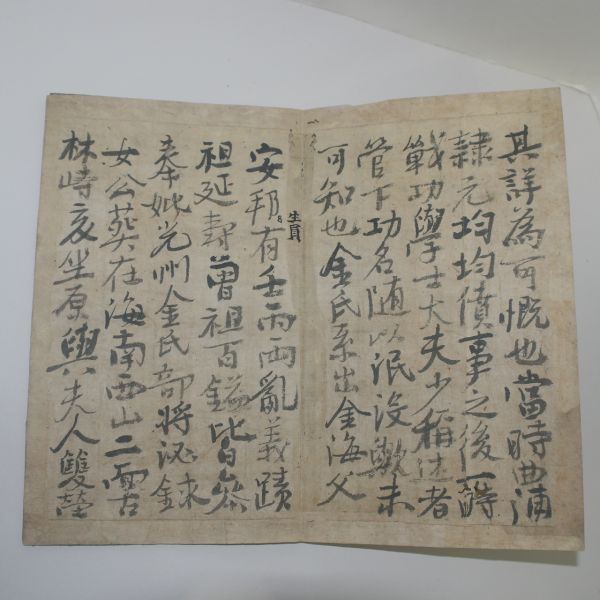 其詳為可慨也當時曲浦
隷元均均僨事之後一時
戰功學士大夫少稱述者
管下功名随以泯没歟未
可知也金氏系出金海父
生員
安邦有壬丙兩亂義蹟
祖延壽曾祖百鎰皆参
奉妣光州金氏部將泌
女公葬在海南西山二雲
林峙亥坐原與夫人雙塋